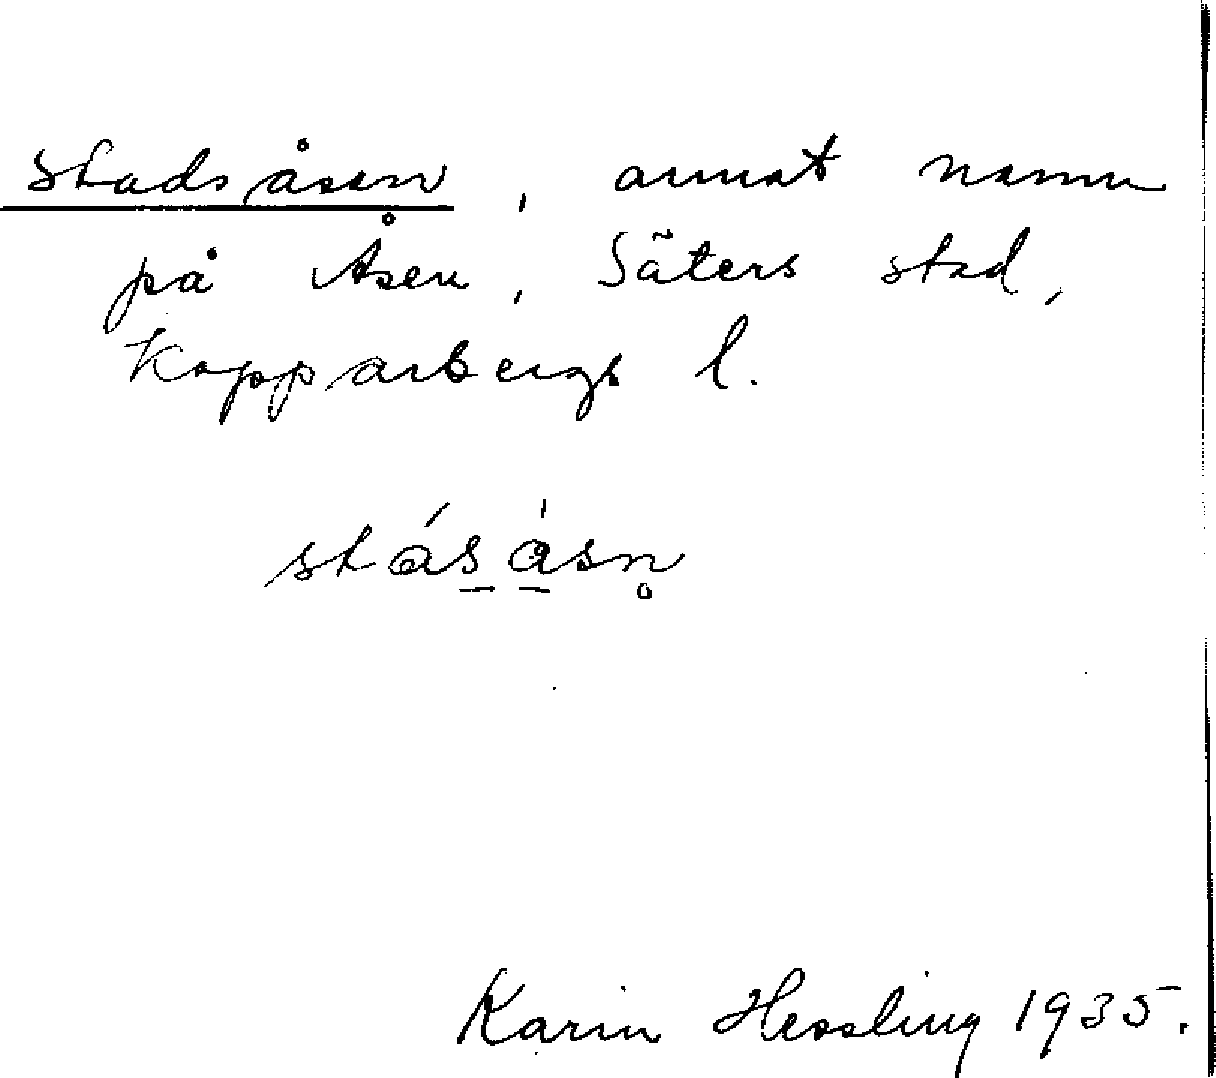 Stadsåsen, annat namn
på Åsen, Säters stad,
Kopparbergs l.
stásåsn̥
Karin Hessling 1935.